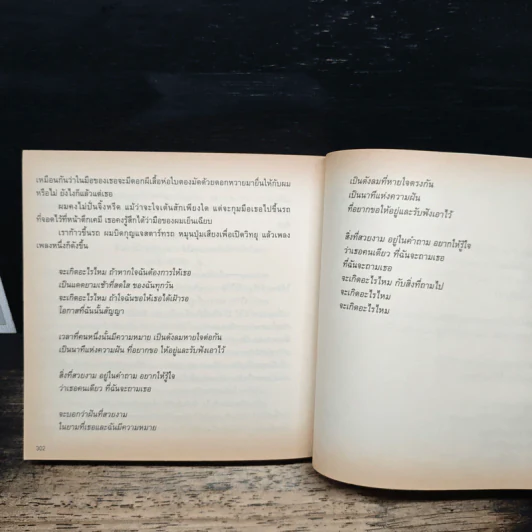 เหมือนกันว่าในมือของเธอจะมีดอกผีเสื้อห่อใบตองมัดด้วยดอกหวายมายื่นให้กับผม
หรือไม่ ยังไงก็แล้วแต่เธอ
ผมคงไม่ปั่นจิ้งหรีด แม้ว่าจะใจเต้นสักเพียงใด แต่จะกุมมือเธอไปขึ้นรถ
ที่จอดไว้ที่หน้าตึกเคมี เธอคงรู้สึกได้ว่ามือของผมเย็นเฉียบ
เราก้าวขึ้นรถ ผมบิดกุญแจสตาร์ทรถ หมุนปุ่มเสียงเพื่อเปิดวิทยุ แล้วเพลง
เพลงหนึ่งก็ดังขึ้น
จะเกิดอะไรไหม ถ้าหากใจฉันต้องการให้เธอ
เป็นแดดยามเช้าที่สดใส ของฉันทุกวัน
จะเกิดอะไรไหม ถ้าใจฉันขอให้เธอได้เฝ้ารอ
โอกาสที่ฉันนั้นสัญญา
เวลาที่คนหนึ่งนั้นมีความหมาย เป็นดังลมหายใจต่อกัน
เป็นนาทีแห่งความฝัน ที่อยากขอ ให้อยู่และรับฟังเอาไว้
สิ่งที่สวยงาม อยู่ในคำถาม อยากให้รู้ใจ
ว่าเธอคนเดียว ที่ฉันจะถามเธอ
จะบอกว่าฝันที่สวยงาม
ในยามที่เธอและฉันมีความหมาย
302
เป็นดังลมที่หายใจตรงกัน
เป็นนาทีแห่งความฝัน
ที่อยากขอให้อยู่และรับฟังเอาไว้
สิ่งที่สวยงาม อยู่ในคำถาม อยากให้รู้ใจ
ว่าเธอคนเดียว ที่ฉันจะถามเธอ
ที่ฉันจะถามเธอ
จะเกิดอะไรไหม กับสิ่งที่ถามไป
จะเกิดอะไรไหม
จะเกิดอะไรไหม